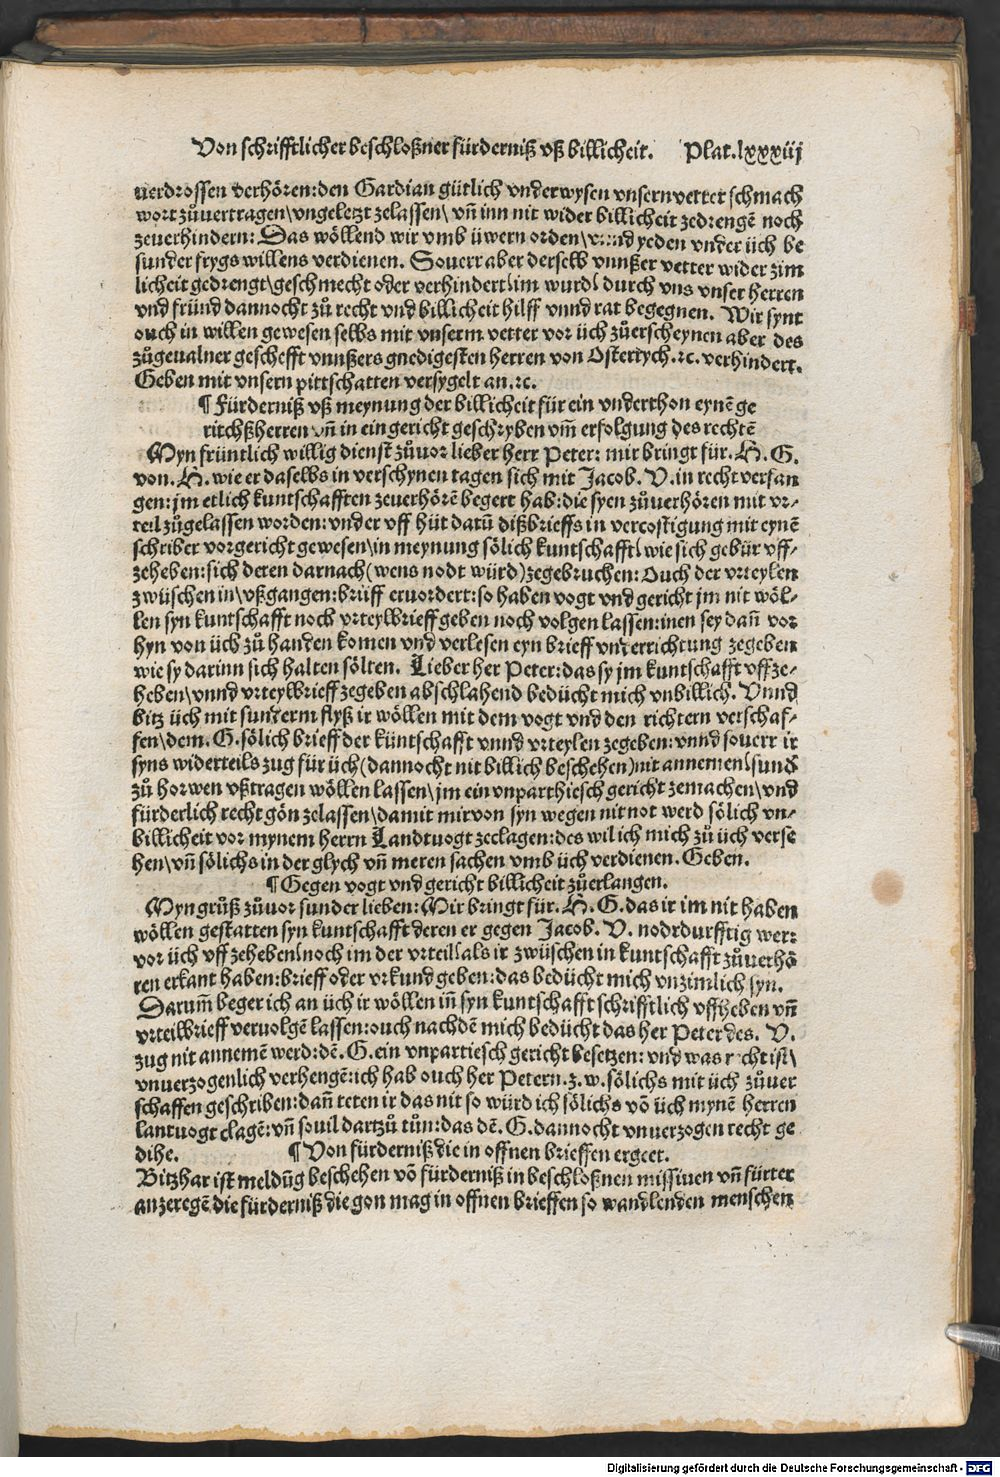 Von schrifftlicher beschloßner fürderniß vß billicheit. Plat.lxxxiij
uerdrossen verhören:den Gardian gütlich vnderwysen vnsern vetter schmach
wort zůuertragen\vngeletzt zelassen\ vñ inn nit wider billicheit zedrengē noch
zeuerhindern: Das wöllend wir vmb üwern orden\ vnnd yeden vnder üch be
sunder frygs willens verdienen. Souerr aber derselb vnnßer vetter wider zim
licheit gedrengt\geschmecht oder verhindert\im wurd\ durch vns vnser herren
vnd fründ dannocht zů recht vnd billicheit hilff vnnd rat begegnen. Wir synt
ouch in willen gewesen selbs mit vnserm vetter vor üch zůerscheynen aber des
zůgeualner geschefft vnnßers gnedigesten herren von Osterrych.ꝛc. verhindert.
Geben mit vnsern pittschatten versygelt an.ꝛc.
¶ Fürderniß vß meynung der billicheit für ein vnderthon eynē ge
ritchßherren vñ in ein gericht geschryben vm̃ erfolgung des rechtē
Myn früntlich willig dienst zůuor lieber herr Peter: mir bringt für. H. G.
von. H. wie er daselbs in verschynen tagen sich mit Jacob. V. in recht verfan
gen:jm etlich kuntschafften zeuerhörē begert hab:die syen zůuerhören mit vr-
teil zůgelassen worden:vnder vff hüt datū dißbrieffs in vercostigung mit eynē
schriber vorgericht gewesen\in meynung sölich kuntschafft\ wie sich gebür vff-
zeheben:sich deren darnach(wens nodt würd)zegebruchen: Ouch der vrteylen
zwüschen in\vßgangen:brüff eruordert:so haben vogt vnd gericht jm nit wöl-
len syn kuntschafft noch vrteylbrieff geben noch volgen lassen:inen sey dañ vor
hyn von üch zů handen komen vnd verlesen eyn brieff vnterrichtung zegeben
wie sy darinn sich halten sölten. Lieber her Peter:das sy jm kuntschafft vff ze-
heben\vnnd vrteylbrieff zegeben abschlahend bedücht mich vnbillich. Vnnd
bitz üch mit sunderm flyß ir wöllen mit dem vogt vnd den richtern verschaf-
fen\dem. G. sölich brieff der küntschafft vnnd vrteylen zegeben:vnnd souerr ir
syns widerteils zug für üch(dannocht nit billich beschehen)nit annemen\sund
zů horwen vßtragen wöllen lassen\jm ein vnparthiesch gericht zemachen\vnd
fürderlich recht gön zelassen\damit mir von syn wegen nit not werd sölich vn-
billicheit vor mynem herrn Landtuogt zeclagen:des wil ich mich zů üch verse
hen\vñ sölichs in der glych vñ meren sachen vmb üch verdienen. Geben.
¶ Gegen vogt vnd gericht billicheit zůerlangen.
Myn grůß zůuor sunder lieben: Mir bringt für. H. G. das ir im nit haben
wöllen gestatten syn kuntschafft deren er gegen Jacob. V. nodrdurfftig wer:
vor üch vff zeheben\noch im der vrteil\als ir zwüschen in kuntschafft zůuerhö
ren erkant haben:brieff oder vrkund geben:das bedücht mich vnzimlich syn.
Darum̃ beger ich an üch ir wöllen iñ syn kuntschafft schrifftlich vffheben vñ
vrteilbrieff veruolgē lassen:ouch nachdē mich bedücht das her Peter des. V.
zug nit annemē werd:dē. G. ein vnpartiesch gericht besetzen: vnd was recht ist\
vnuerzogenlich verhengē:ich hab ouch her Petern.z.w.sölichs mit üch zůuer
schaffen geschriben:dañ teten ir das nit so würd ich sölichs vō üch mynē herren
lantuogt clagē:vñ souil dartzů tůn:das dē. G. dannocht vnuerzogen recht ge
dihe. ¶ Von fürderniß die in offnen brieffen ergeet.
Bitzhar ist meldūg beschehen vō fürderniß in beschloßnen missiuen vñ fürter
anzeregē die fürderniß die gon mag in offnen brieffen so wandlenden menschen
Digitalisierung gefördert durch die Deutsche Forschungsgemeinschaft - DFG